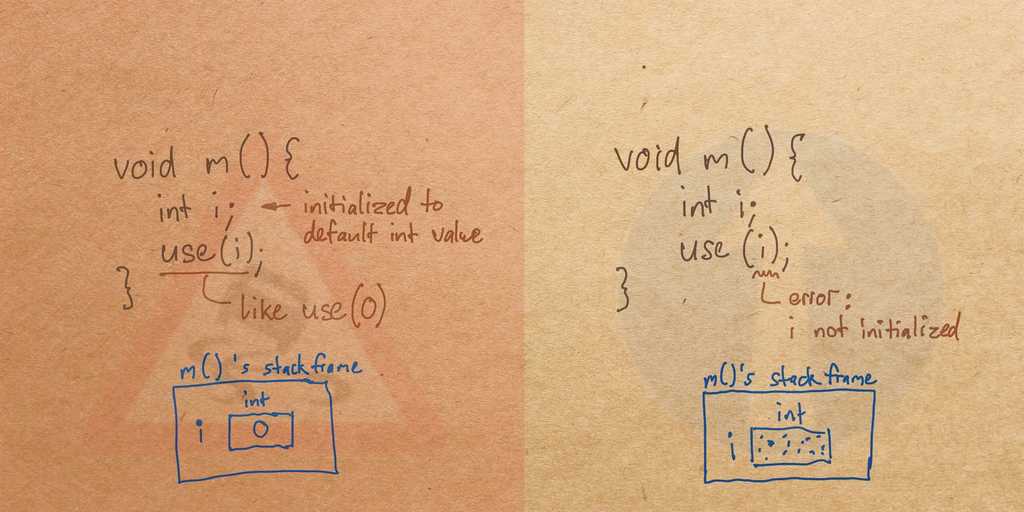 void m() {
int i; ← initialized to
default int value
use(i);
}
like use(0)
m()'s stack frame
int
i 0
void m() {
int i;
use (i);
}
error:
i not initialized
m()'s stack frame
int
i